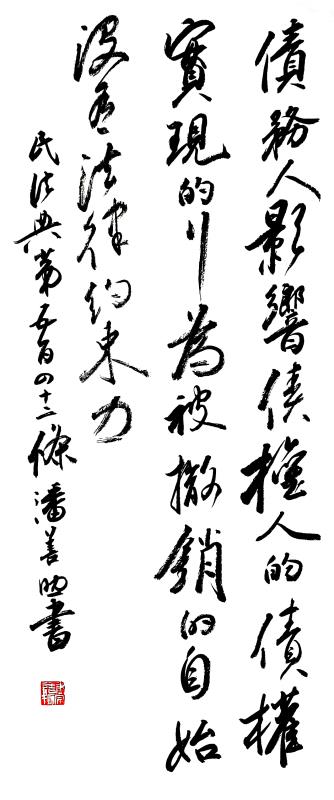 債務人影響債權人的債權
實現的行為被撤銷的自始
沒有法律約束力
民法典第五百四十二條潘善助書